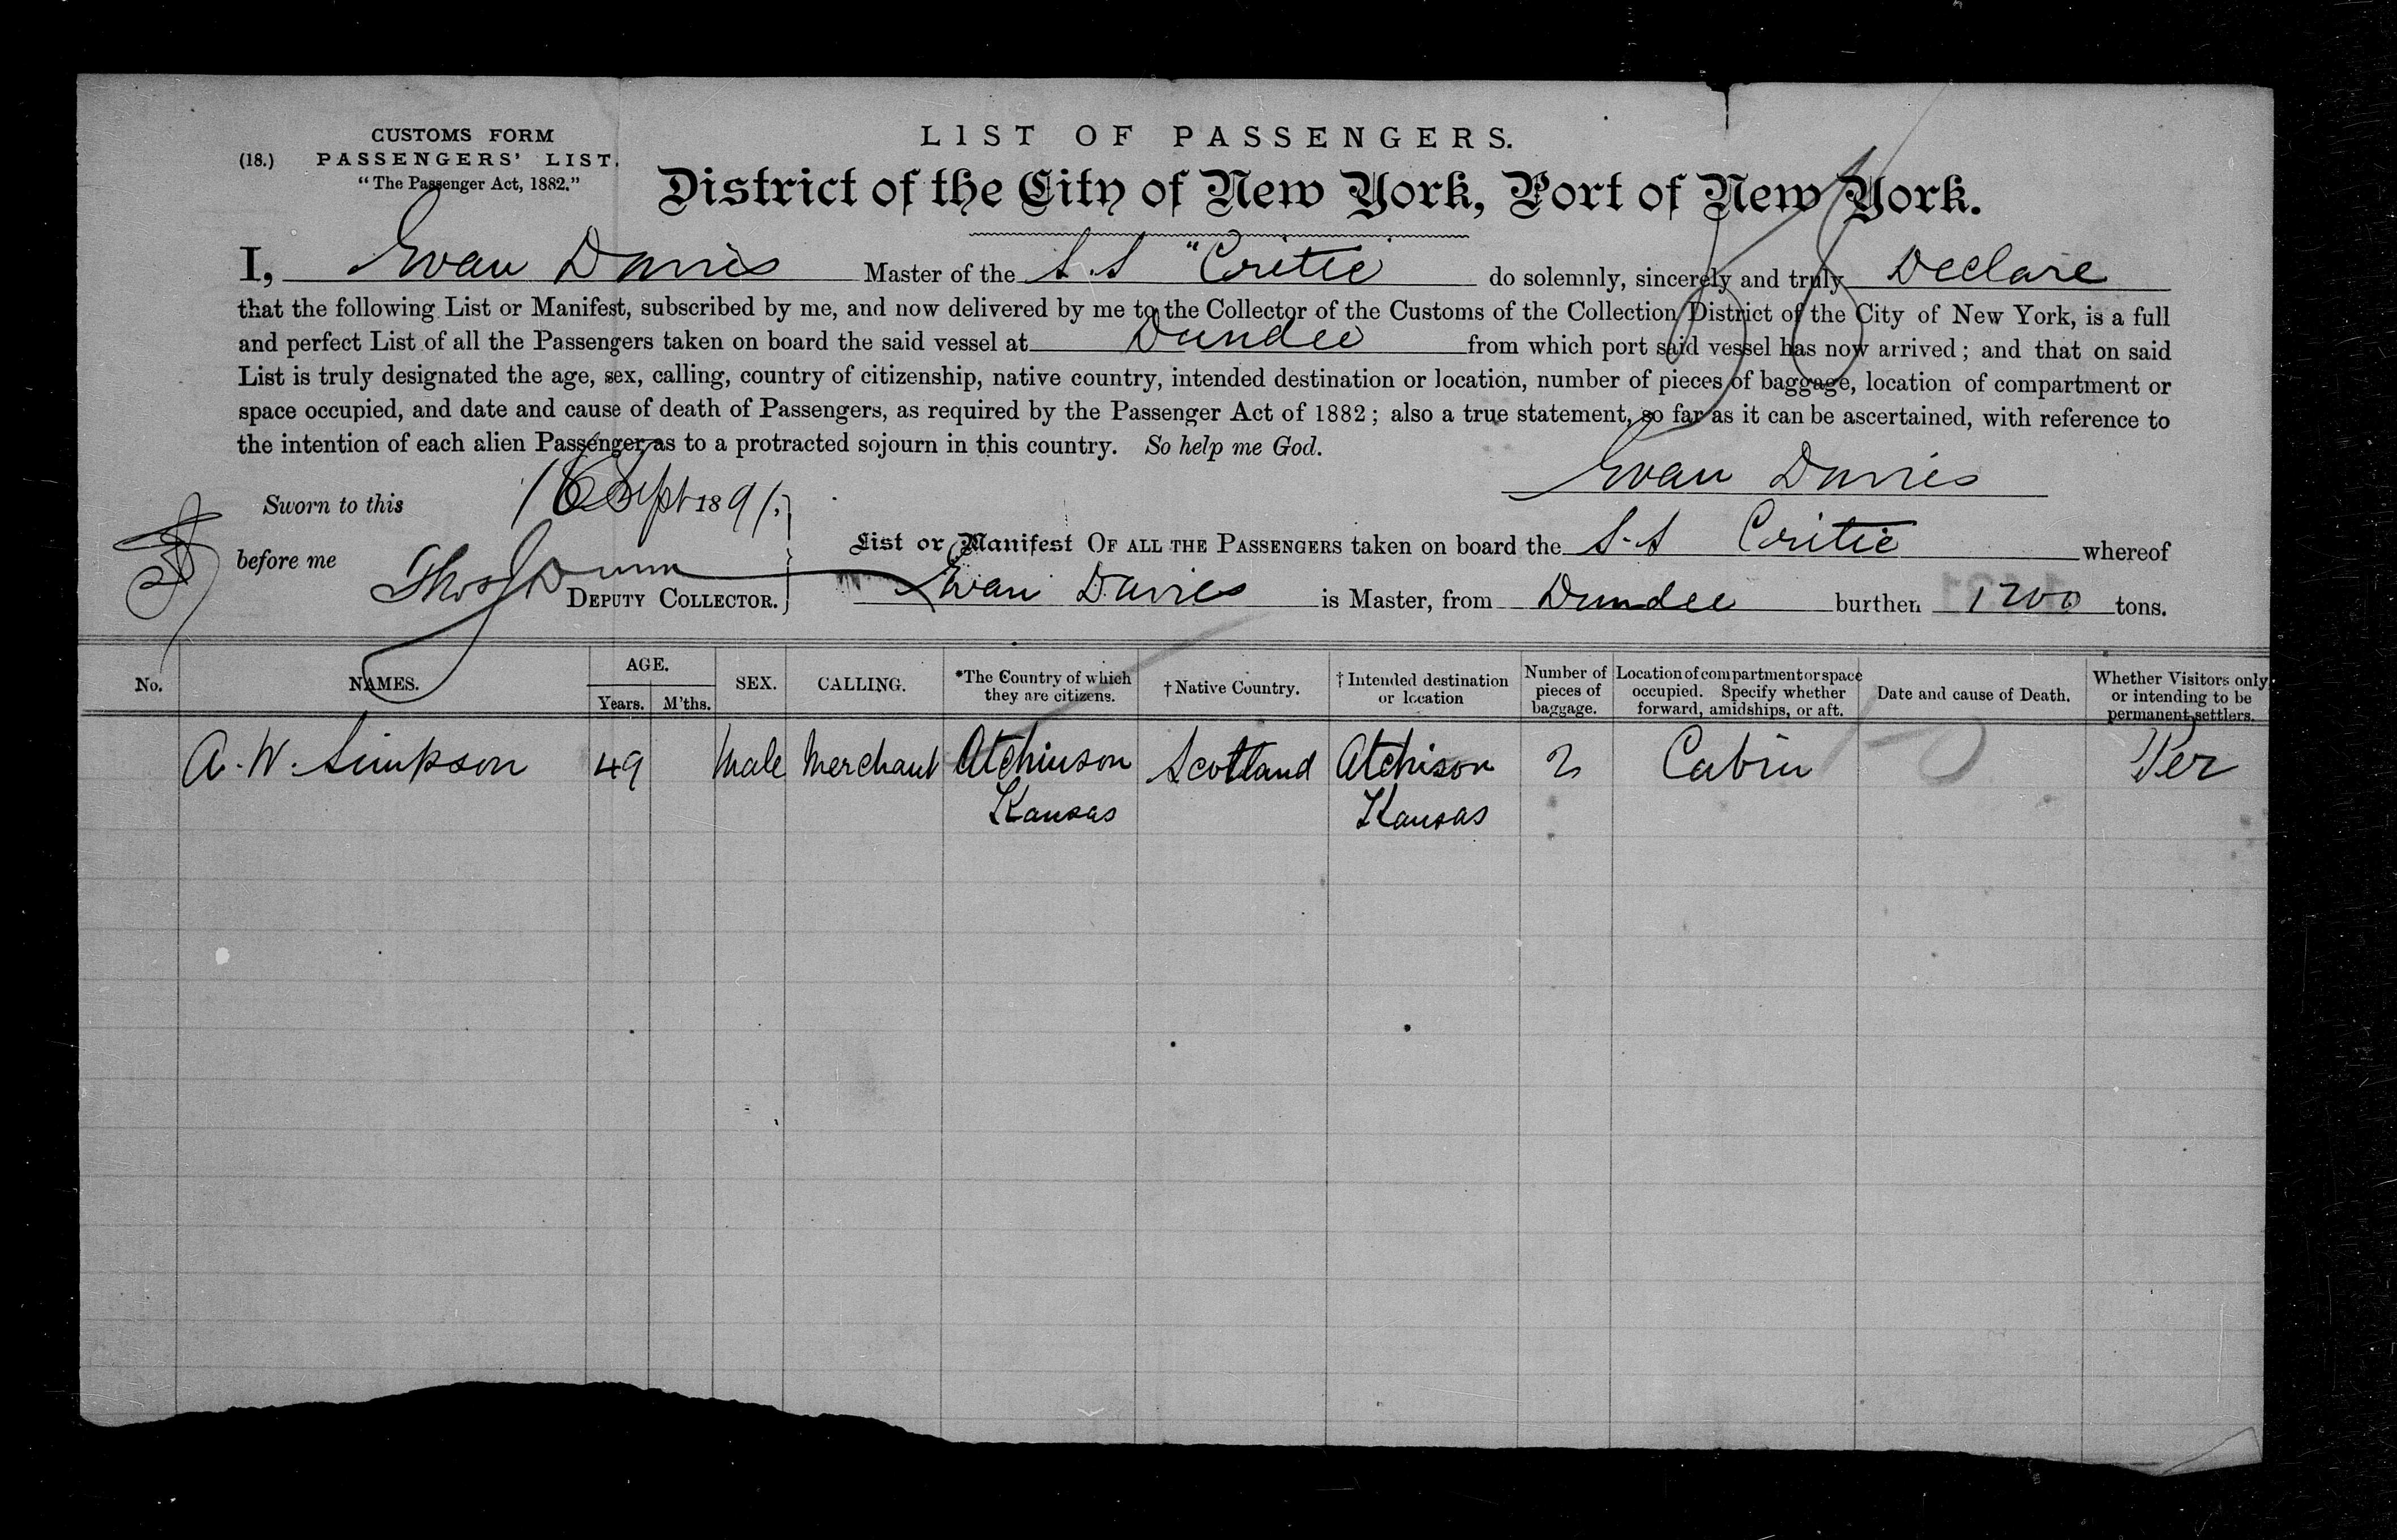 CUSTOMS FORM
(18.) PASSENGERS' LIST.
"The Passenger Act, 1882."
LIST OF PASSENGERS.
District of the City of New York, Port of New York.
I, Evan Davies Master of the S.S "Critic" do solemnly, sincerely and truly Declare
that the following List or Manifest, subscribed by me, and now delivered by me to the Collector of the Customs of the Collection District of the City of New York, is a full
and perfect List of all the Passengers taken on board the said vessel at Dundee from which port said vessel has now arrived; and that on said
List is truly designated the age, sex, calling, country of citizenship, native country, intended destination or location, number of pieces of baggage, location of compartment or
space occupied, and date and cause of death of Passengers, as required by the Passenger Act of 1882; also a true statement, so far as it can be ascertained, with reference to
the intention of each alien Passenger as to a protracted sojourn in this country. So help me God.
Evan Davies
Sworn to this 16 Sept 1891.
before me Thos Dunn
DEPUTY COLLECTOR.
List or Manifest OF ALL THE PASSENGERS taken on board the S.S Critic whereof
Evan Davies is Master, from Dundee burthen 1200 tons.
No. NAMES. AGE. Years. M'ths. SEX. CALLING. *The Country of which they are citizens. †Native Country. †Intended destination or location Number of pieces of baggage. Location of compartment or space occupied. Specify whether forward, amidships, or aft. Date and cause of Death. Whether Visitors only or intending to be permanent settlers.
A. W. Simpson 49 Male Merchant Atchinson Scotland Atchison 2 Cabin Per
Kansas Kansas